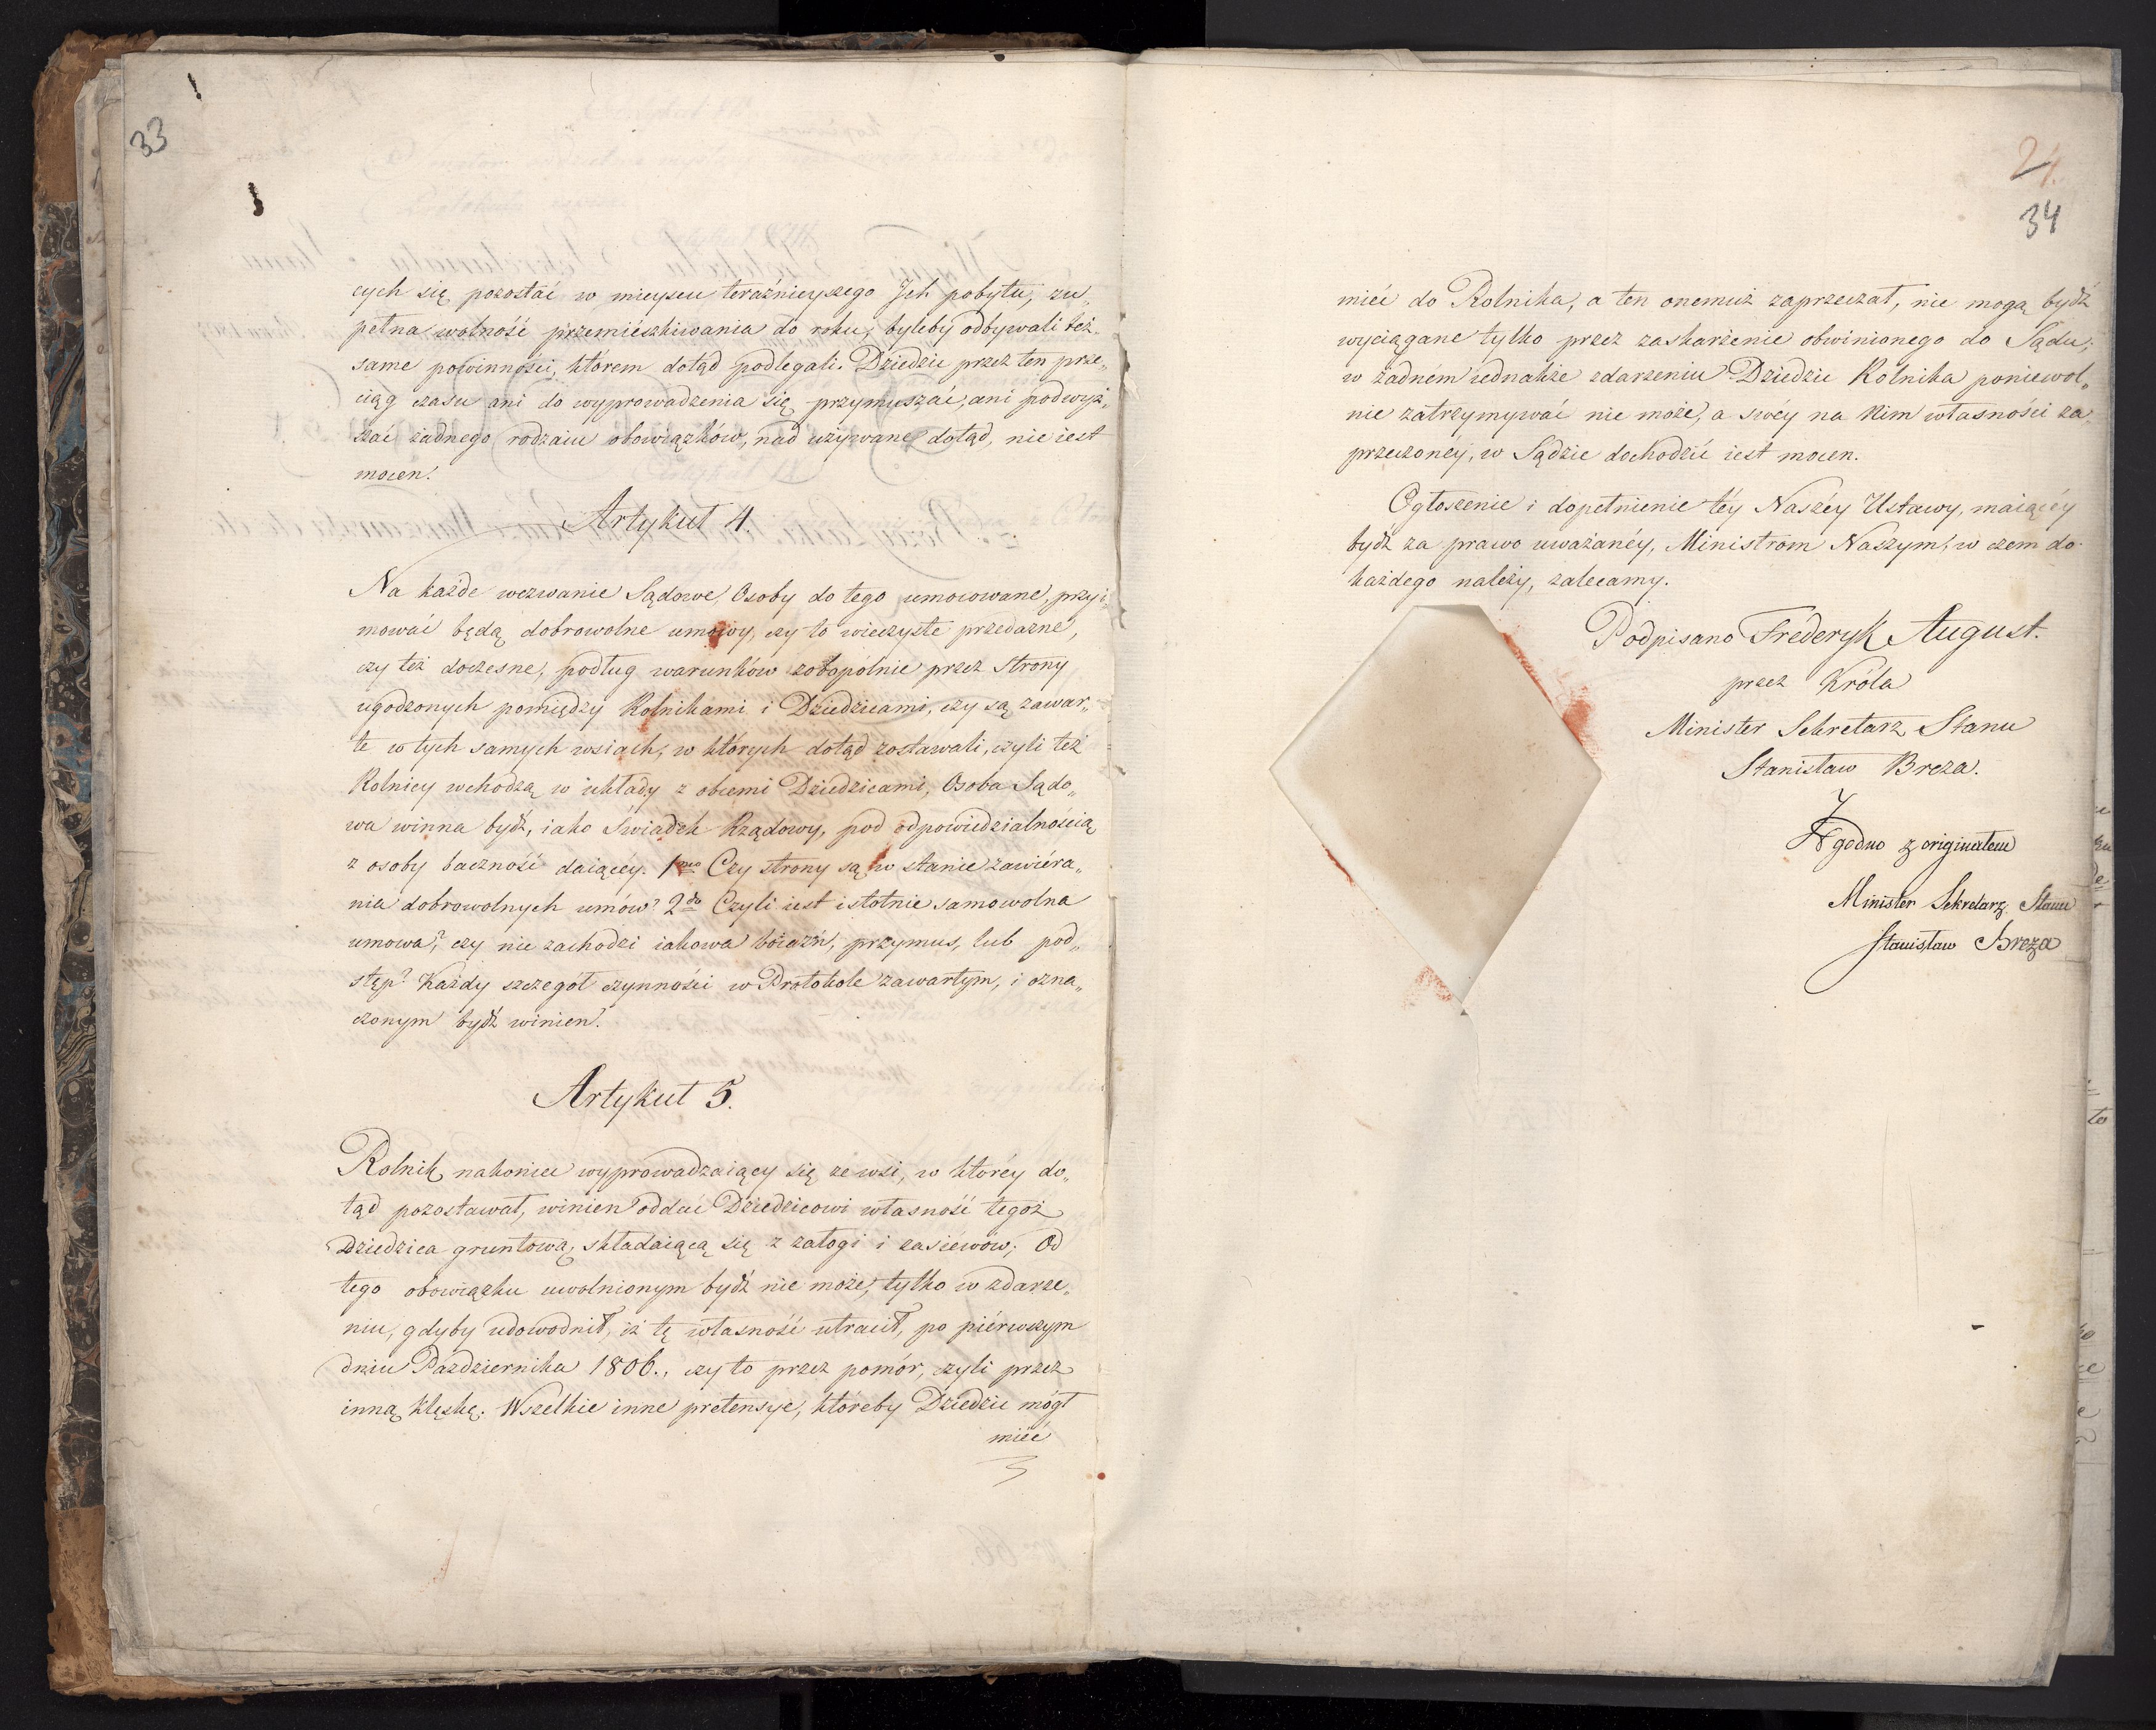 33
cych się pozostać w mieyscu teraźnieyszego Ich pobytu, zu„
pełna wolność przemieszkiwania do roku, byleby odbywali też„
same powinności, którem dotąd podlegali. Dziedzic przez ten prze„
ciąg czasu ani do wyprowadzenia się przymuszać, ani podwyż„
szać żadnego rodzaiu obowiązków, nad używane dotąd, nie iest
mocen.
Artykuł 4.
Na każde wezwanie Sądowe, Osoby do tego umocowane, przyi„
mować będą dobrowolne umowy, czy to wieczyste przedażne,
czy też doczesne, podług warunków zobopólnie przez Strony
ugodzonych pomiędzy Rolnikami i Dziedzicami, czy są zawar„
te w tych samych wsiach, w których dotąd zostawali, czyli też
Rolnicy wchodzą w układy z obcemi Dziedzicami, Osoba Sądo„
wa winna bydź, iako Świadek Rządowy, pod odpowiedzialnością
z osoby baczność daiącéy. 1mo Czy strony są w stanie zawiéra„
nia dobrowolnych umów? 2do Czyli iest istotnie samowolna
umowa?, czy nie zachodzi iakowa boiaźń, przymus, lub pod„
stęp? Każdy szczegół czynności w Protokole zawartym, i ozna„
czonym bydź winien.
Artykuł 5.
Rolnik nakoniec wyprowadzaiący się ze wsi, w któréy do„
tąd pozostawał, winien oddać Dziedzicowi własność tegoż
Dziedzica gruntową, składaiącą się z załogi i zasiewów; Od
tego obowiązku uwolnionym bydź nie może, tylko w zdarze„
niu, gdyby udowodnił, iż tę własność utracił, po piérwszym
dniu Pazdziernika 1806., czy to przez pomór, czyli przez
inną klęskę. Wszelkie inne pretensye, któreby Dziedzic mógł
mieć
21.
34
mieć do Rolnika, a ten onemuż zaprzeczał, nie mogą bydź
wyciągane tylko przez zaskarżenie obwinionego do Sądu;
w żadném iednakże zdarzeniu Dziedzic Rolnika poniewol„
nie zatrzymywać nie może, a swéy na Nim własności za„
przeczonéy, w Sądzie dochodzić iest mocen.
Ogłoszenie i dopełnienie téy Naszéy Ustawy, maiącéy
bydź za prawo uważanéy, Ministrom Naszym, w czem do
każdego należy, zalecamy.
Podpisano Frederyk August.
przez Króla
Minister Sekretarz Stanu
Stanisław Breza.
Zgodno z originałem
Minister Sekretarz Stanu
Stanisław Breza